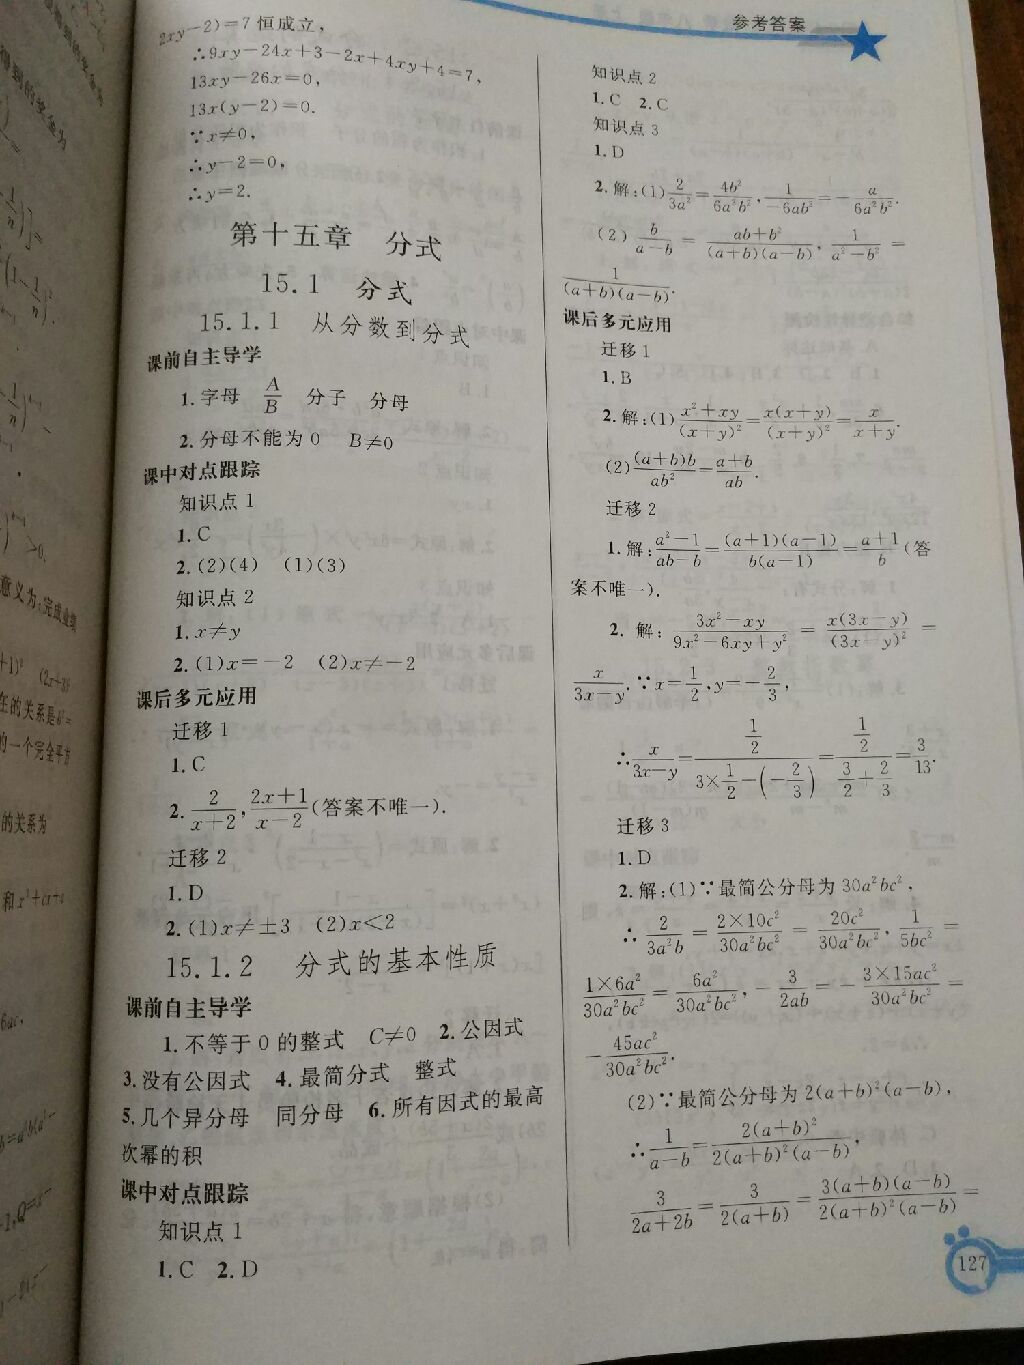 参考答案
2xy-2)=7恒成立,
∴9xy-24x+3-2x+4xy+4=7,
13xy-26x=0,
13x(y-2)=0.
∵x≠0,
∴y-2=0,
∴y=2.
第十五章 分式
15.1 分式
15.1.1 从分数到分式
课前自主导学
1.字母 A/B 分子 分母
2.分母不能为0 B≠0
课中对点跟踪
知识点1
1.C
2.(2)(4) (1)(3)
知识点2
1.x≠y
2.(1)x=-2 (2)x≠-2
课后多元应用
迁移1
1.C
2. 2/(x+2), (2x+1)/(x-2) (答案不唯一).
迁移2
1.D
2.(1)x≠±3 (2)x<2
15.1.2 分式的基本性质
课前自主导学
1.不等于0的整式 C≠0 2.公因式
3.没有公因式 4.最简分式 整式
5.几个异分母 同分母 6.所有因式的最高
次幂的积
课中对点跟踪
知识点1
1.C 2.D
知识点2
1.C 2.C
知识点3
1.D
2.解:(1) 2/(3a²)=4b²/(6a²b²), 1/(-6ab²)=-a/(6a²b²).
(2) b/(a-b) = (ab+b²)/((a+b)(a-b)), 1/(a²-b²) =
1/((a+b)(a-b)).
课后多元应用
迁移1
1.B
2.解:(1) (x²+xy)/(x+y)²=x(x+y)/(x+y)²=x/(x+y).
(2) (a+b)b/(ab²)=(a+b)/(ab).
迁移2
1.解: (a²-1)/(ab-b)=(a+1)(a-1)/(b(a-1))=(a+1)/b (答
案不唯一).
2. 解: (3x²-xy)/(9x²-6xy+y²) = x(3x-y)/(3x-y)² =
x/(3x-y). ∵x=1/2, y=-2/3,
∴x/(3x-y)=(1/2)/(3×1/2-(-2/3))=(1/2)/(3/2+2/3)=3/13.
迁移3
1.D
2.解:(1)∵最简公分母为30a²bc²,
∴ 2/(3a²b) = (2×10c²)/(30a²bc²) = 20c²/(30a²bc²), 1/(5bc²) =
(1×6a²)/(30a²bc²) = 6a²/(30a²bc²), -3/(2ab) = -(3×15ac²)/(30a²bc²) =
-45ac²/(30a²bc²).
(2)∵最简公分母为2(a+b)²(a-b),
∴1/(a-b)=2(a+b)²/(2(a+b)²(a-b)),
3/(2a+2b)=3/(2(a+b))=3(a+b)(a-b)/(2(a+b)²(a-b))=
127